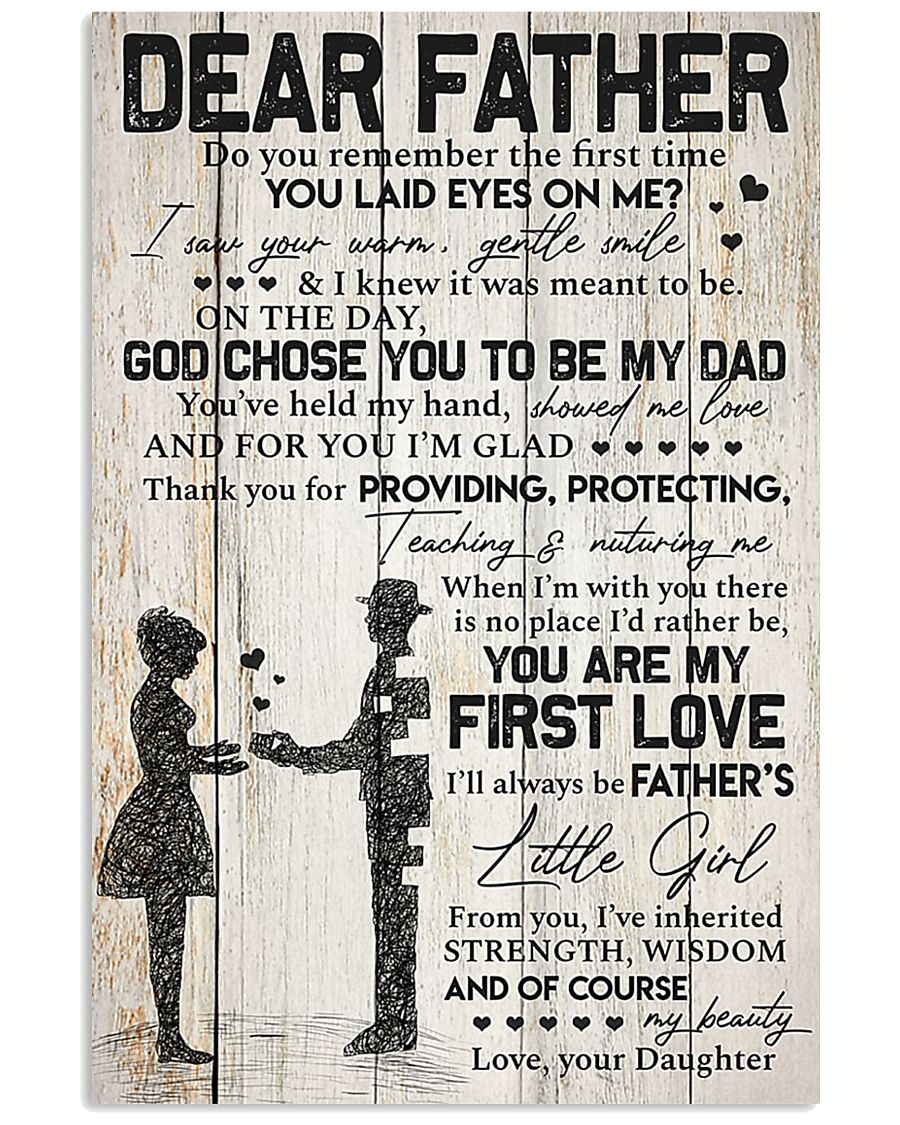 DEAR FATHER
Do you remember the first time
YOU LAID EYES ON ME?
I saw your warm, gentle smile
& I knew it was meant to be.
ON THE DAY,
GOD CHOSE YOU TO BE MY DAD
You've held my hand, showed me love
AND FOR YOU I'M GLAD
Thank you for PROVIDING, PROTECTING,
Teaching & nuturing me
When I'm with you there
is no place I'd rather be,
YOU ARE MY
FIRST LOVE
I'll always be FATHER'S
Little Girl
From you, I've inherited
STRENGTH, WISDOM
AND OF COURSE
my beauty
Love, your Daughter